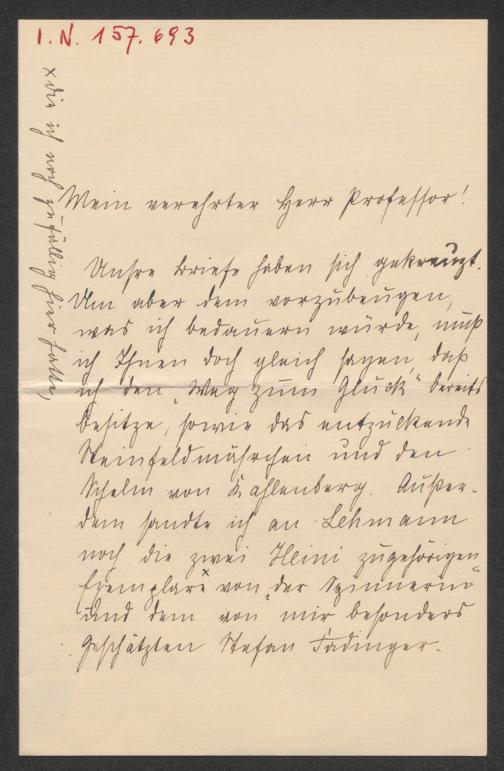 I. N. 157.693
x die ich noch zufällig hier hatte,
Mein verehrter Herr Professor!
Unsre Briefe haben sich gekreuzt.
Um aber dem vorzubeugen,
was ich bedauern würde, muß
ich Ihnen doch gleich sagen, daß
ich den „Weg zum Glück“ bereits
besitze, sowie das entzückende
Steinfeldmährchen und den
Schelm von Kahlenberg. Außer-
dem sandte ich an Lehmann
noch die zwei Heini zugehörigen
Exemplare x von „der Spinnerin“
und dem von mir besonders
geschätzten Stefan Fadinger.